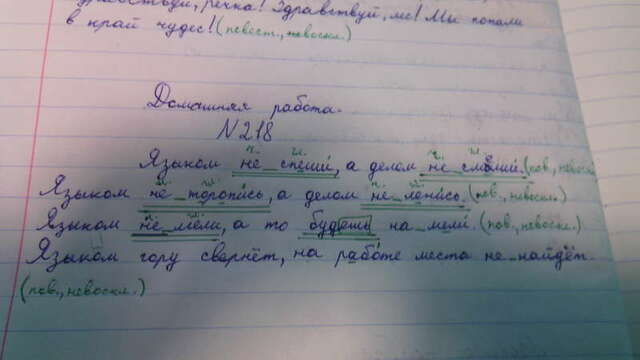 Здравствуй, речка! Здравствуй, лес! Мы попали
в край чудес! (повест., невоскл.)
Домашняя работа.
N218
Языком не спеши, а делом не смеши. (пов., невоскл
Языком не торопись, а делом не ленись. (пов., невоскл.)
Языком не мели, а то будешь на мели. (пов., невоскл.)
Языком гору свернёт, на работе места не найдёт.
(пов., невоскл.)